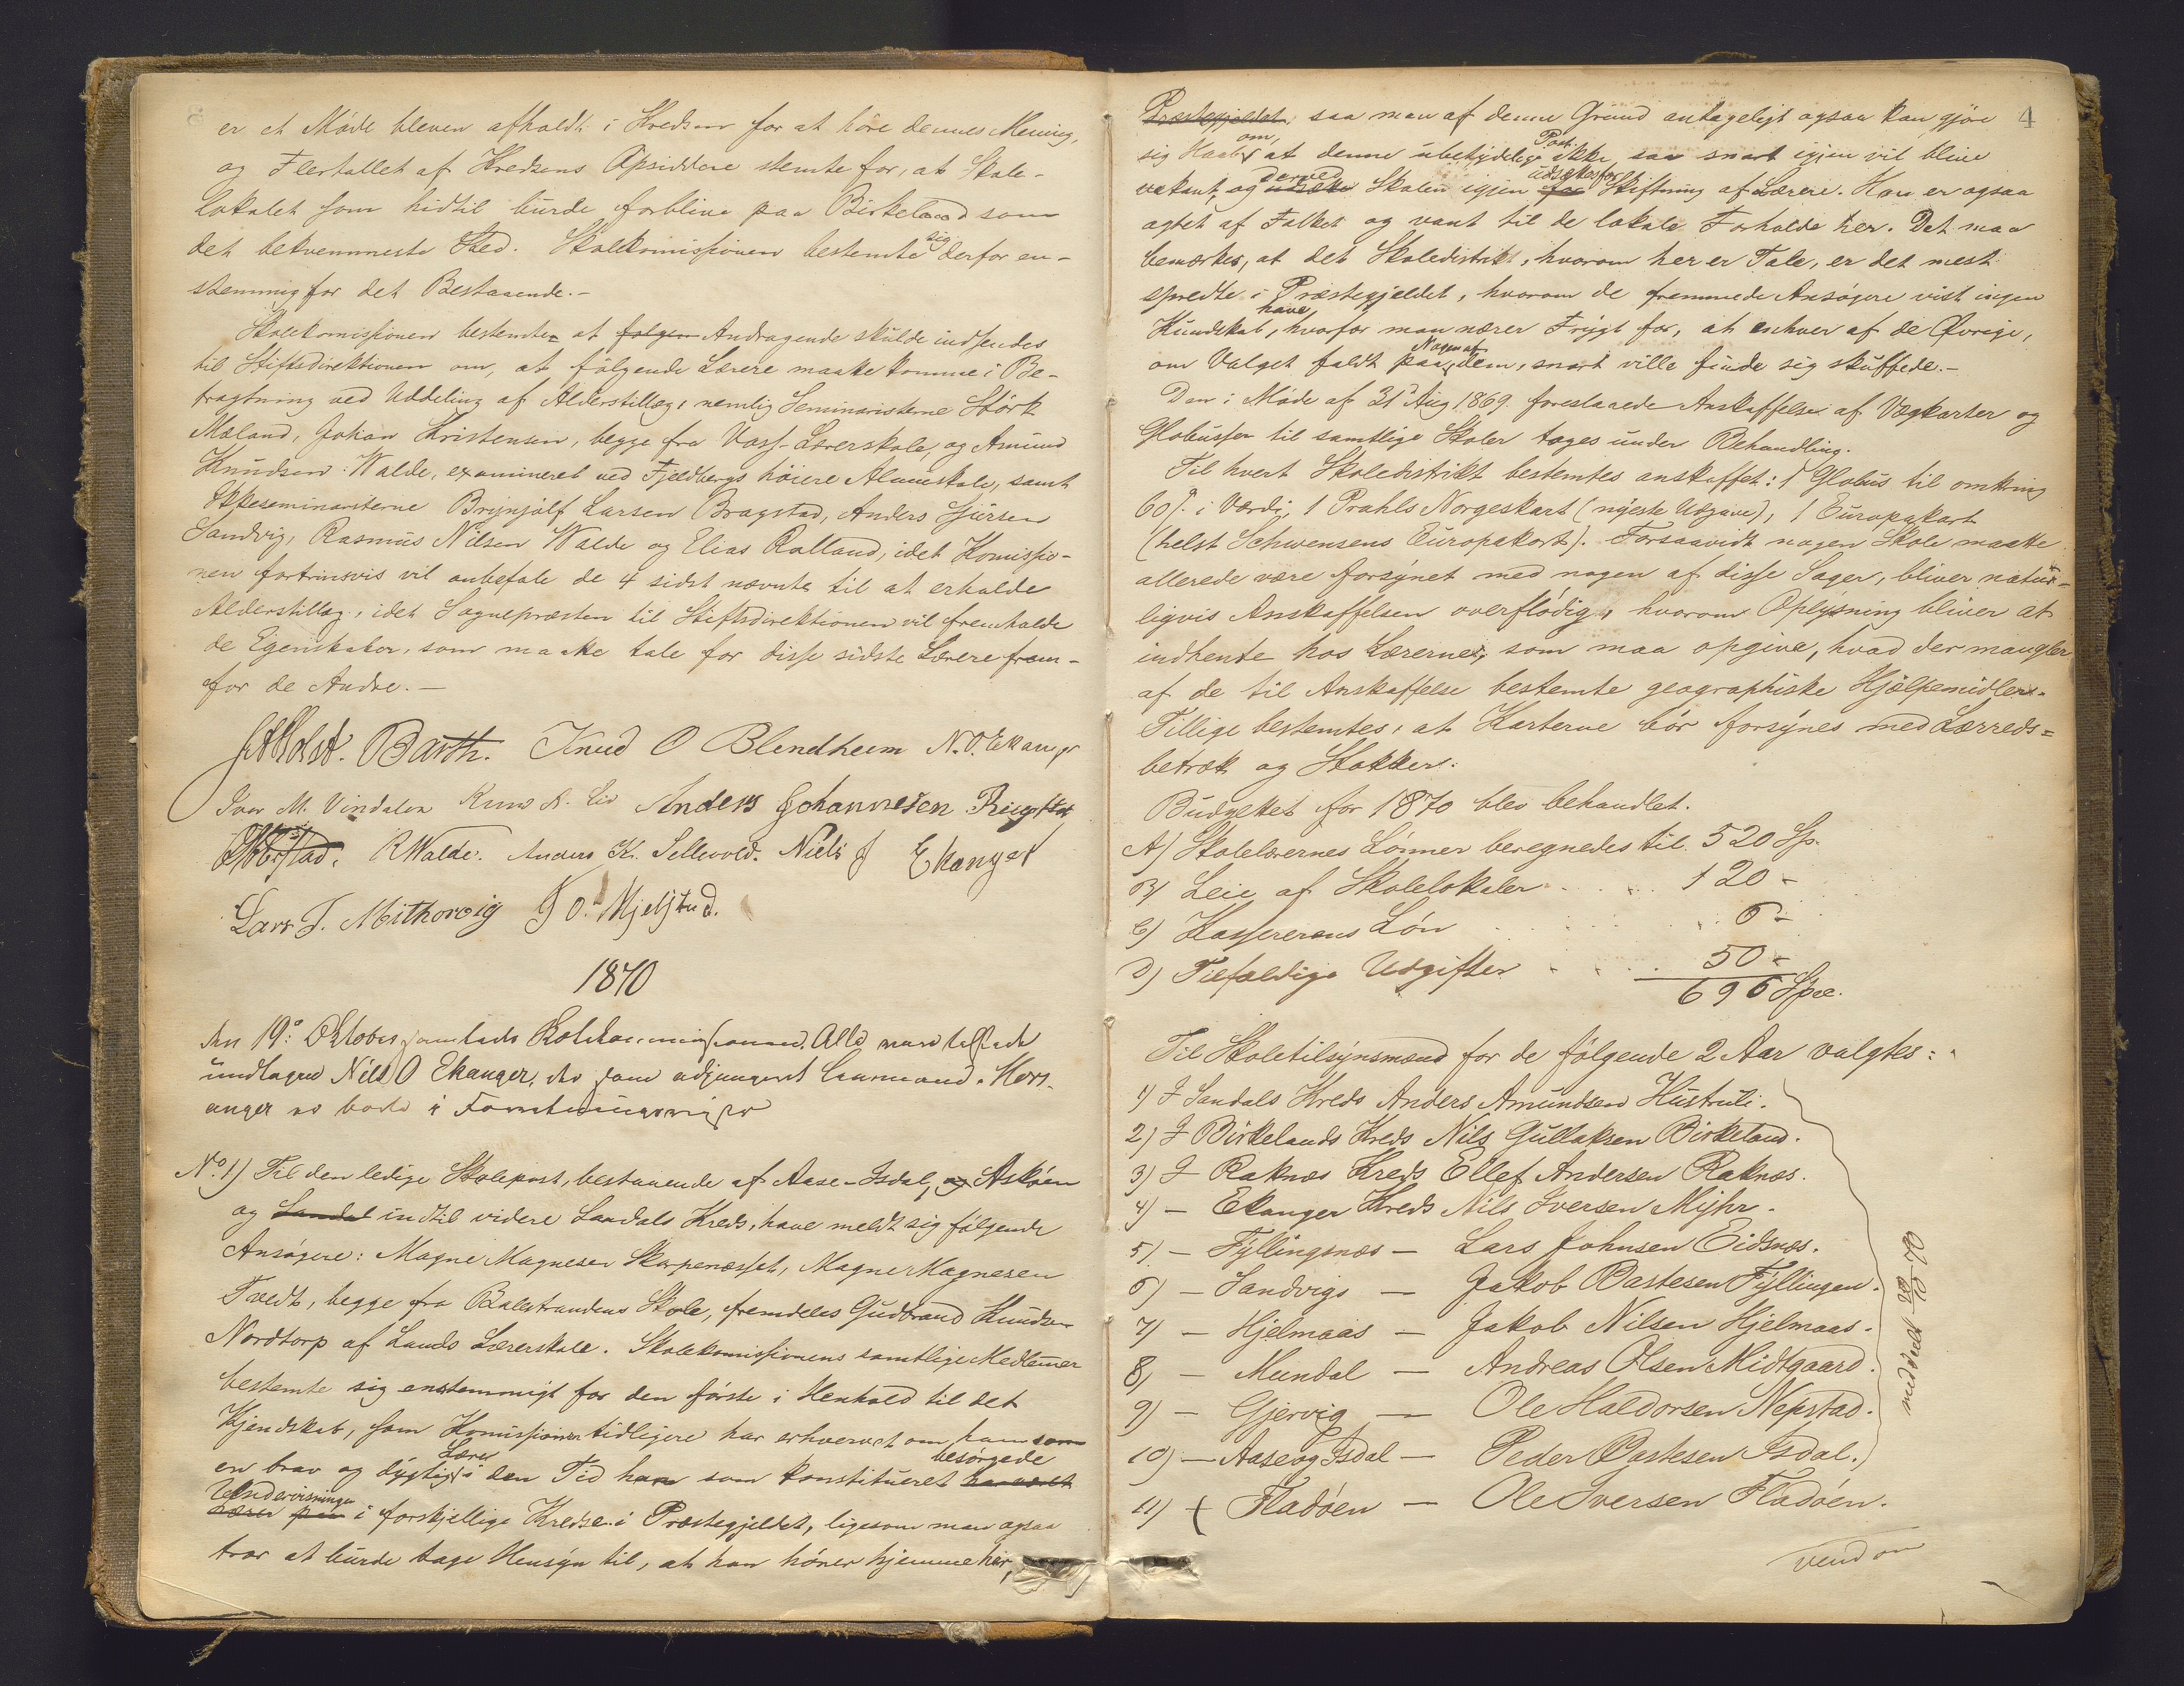 er et Möde bleven afholdt i Kredsen for at höre dennes Mening,
og Flertallet af Kredsens Opsiddere stemte for, at Skole-
lokalet som hidtil burde forblive paa Birkeland som
det bekvemmeste Sted. Skolekomissionen bestemte sig derfor en-
stemmig for det Bestaaende.-
Skolekomissionen bestemte at følgen Andragende skulde indsendes
til Stiftsdirektionen om, at følgende Lærere maatte komme i Be-
tragtning ved Uddeling af Alderstillæg, nemlig Seminaristerne Störk
Mæland, Johan Kristensen, begge fra Voss-Lærerskole, og Amund
Knudsen Walde, examineret ved Fjeldbergs höiere Almueskole, samt
Ikkeseminaristerne Brynjulf Larsen Bragstad, Anders Sjursen
Sandvig, Rasmus Nilsen Walde og Elias Rolland, idet Komissio-
nen fortrinsvis vil anbefale de 4 sidst nævnte til at erholde
Alderstillæg, idet Sognepræsten til Stiftsdirektionen vil fremholde
de Egenskaber, som maatte tale for disse sidste Lærere frem-
for de Andre.-
Holst. Barth. Knud O Blendheim N. O. Ekanger
Iver M. Vindalen Knud N. Lid Anders Johannesen Ringstad
RWalde. Anders K. Sellevold. Niels J Ekanger
Lars T. Mithorvig J O. Mjelstad.
1870
den 19: Oktober samledes Alle vare tilstede
undtagen Nils O Ekanger, der som adjungeret Laurmand. Kors-
anger
No. 1) Til den ledige Skolepost, bestaaende af Aase-Isdal, og Asköen
og Sandal indtil videre Sandals Kreds, have meldt sig følgende
Ansögere: Magne Magnesen Skarpenæsset, Magne Magnesen
Tvedt, begge fra Balestrandens Skole, fremdeles Gudbrand Knudsen
Nordtorp af Lands Lærerskole. Skolekomissionens samtlige Medlemmer
bestemte sig enstemmigt for den förste i Henhold til det
Kjendskab, som Komissionen tidligere har erhvervet om ham som
en brav og dygtig Lærer i den Tid han som konstitueret har været besörgede
Lærer paa Undervisningen i forskjellige Kredse i Præstegjeldet, ligesom man ogsaa
tror at burde tage Hensyn til, at han hörer hjemme her,
4
Præstegjeldet, saa man af denne Grund antageligt ogsaa kan gjöre
sig Haab om, at denne ubetydelige Post ikke saa snart igjen vil blive
vakant, og derved Skolen igjen udsættes for Skiftning af Lærere. Han er ogsaa
agtet af Folket og vant til de lokale Forholde her. Det maa
bemærkes, at det Skoledistrikt, hvorom her er Tale, er det mest
spredte i Præstegjeldet, hvorom de fremmede Ansögere vist ingen
Kundskab have, hvorfor man nærer Frygt for, at enhver af de Övrige,
om Valget faldt paa Nogen af dem, snart ville finde sig skuffede.-
Den i Möde af 31 Aug 1869 foreslaaede Anskaffelse af Vægkarter og
Globusser til samtlige Skoler toges under Behandling.
Til hvert Skoledistrikt bestemtes anskaffet: 1 Globus til omkring
60 s. i Værdi, 1 Prahls Norgeskart (nyeste Udgave), 1 Europakart
(helst Schwensens Europakart). Forsaavidt nogen Skole maatte
allerede være forsynet med nogen af disse Sager, bliver natur-
ligvis Anskaffelsen overflödig, hvorom Oplysning bliver at
indhente hos Lærerne, som maa opgive, hvad der mangler
af de til Anskaffelse bestemte geographiske Hjælpemidler.
Tillige bestemtes, at Karterne bör forsynes med Lærreds-
betræk og Stokker.
Budgettet for 1870 blev behandlet.
A) Skolelærernes Lönner beregnedes til 520 Sp.
B) Leie af Skolelokaler . . . . 120 -
C) Kassererens Lön . . . . 6 -
D) Tilfældige Udgifter . . . . 50 -
696 Spd.
Til Skoletilsynsmænd for de følgende 2 Aar valgtes:
1) I Sandals Kreds Anders Amundsen Hustruli.
2) I Birkelands Kreds Nils Gullaksen Birkeland.
3) I Raknæs Kreds Ellef Andersen Raknæs.
4) - Ekanger Kreds Nils Iversen Myhr.
5) - Fyllingsnæs - Lars Johnsen Eidsnæs.
6) - Sandvigs - Jakob Bastesen Fyllingen.
7) - Hjelmaas - Jakob Nilsen Hjelmaas.
8) - Mundal - Andreas Olsen Midtgaard.
9) - Gjervig - Ole Haldorsen Nepstad.
10) - Aase og Isdal - Peder Bastesen Isdal.
11) - Fladöen - Ole Iversen Fladöen.
meddelt
vend om